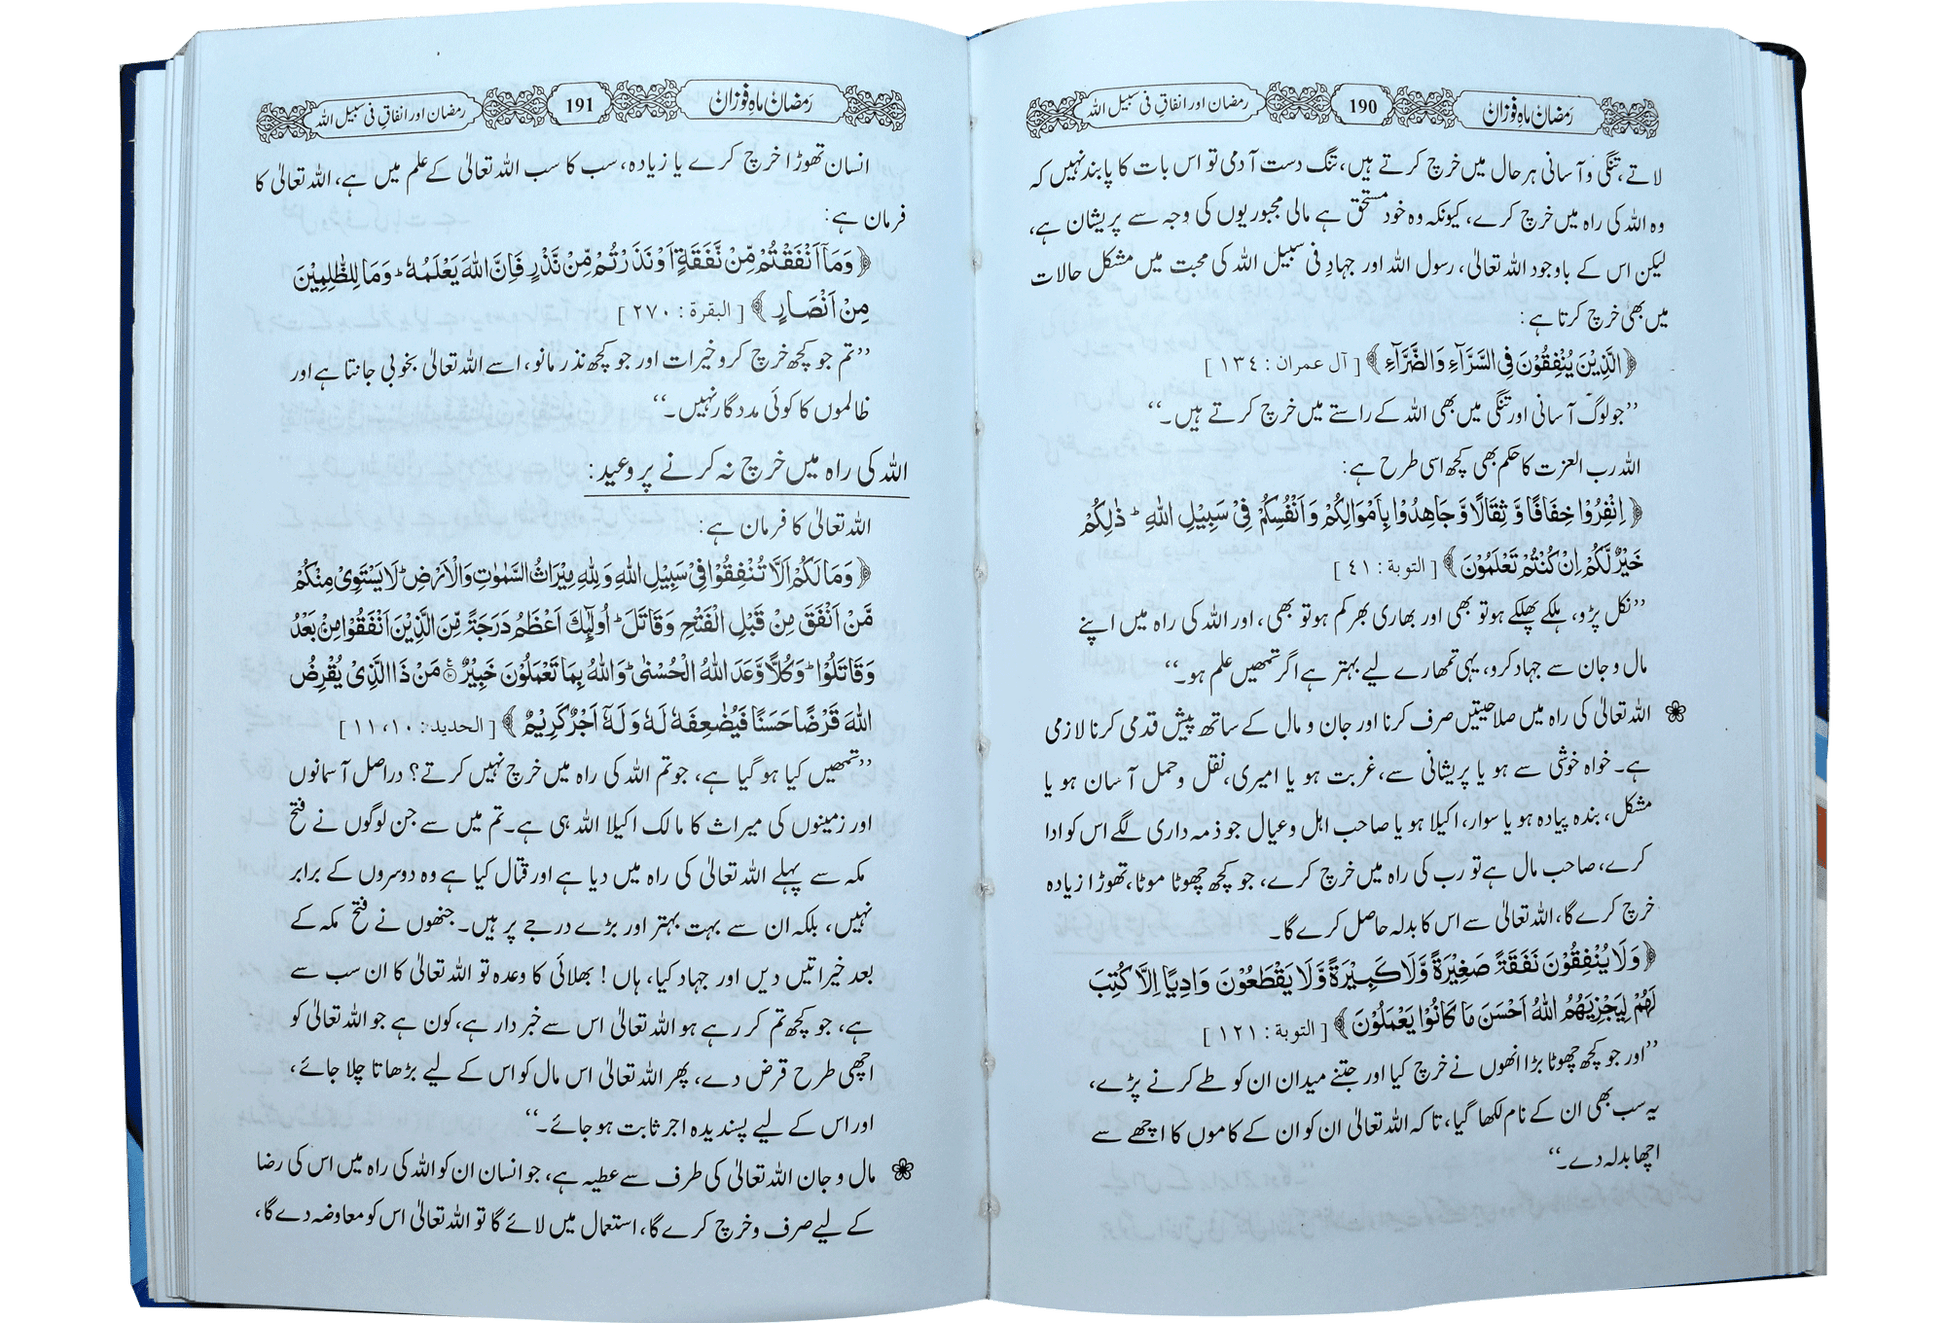 رمضان ماہِ فوزاں 190 رمضان اور انفاقِ فی سبیل اللہ
لاتے، تنگی و آسانی ہر حال میں خرچ کرتے ہیں، تنگ دست آدمی تو اس بات کا پابند نہیں کہ
وہ اللہ کی راہ میں خرچ کرے، کیونکہ وہ خود مستحق ہے مالی مجبوریوں کی وجہ سے پریشان ہے،
لیکن اس کے باوجود اللہ تعالیٰ، رسول اللہ اور جہادِ فی سبیل اللہ کی محبت میں مشکل حالات
میں بھی خرچ کرتا ہے:
﴿ الَّذِیْنَ یُنْفِقُوْنَ فِی السَّرَّآءِ وَالضَّرَّآءِ ﴾ [ آل عمران : ١٣٤ ]
’’جو لوگ آسانی اور تنگی میں بھی اللہ کے راستے میں خرچ کرتے ہیں۔‘‘
اللہ رب العزت کا حکم بھی کچھ اسی طرح ہے:
﴿ اِنْفِرُوْا خِفَافًا وَّ ثِقَالًا وَّ جَاهِدُوْا بِاَمْوَالِكُمْ وَ اَنْفُسِكُمْ فِیْ سَبِیْلِ اللهِ ؕ ذٰلِكُمْ
خَیْرٌ لَّكُمْ اِنْ كُنْتُمْ تَعْلَمُوْنَ ﴾ [ التوبة : ٤١ ]
’’نکل پڑو، ہلکے پھلکے ہو تو بھی اور بھاری بھر کم ہو تو بھی، اور اللہ کی راہ میں اپنے
مال و جان سے جہاد کرو، یہی تمھارے لیے بہتر ہے اگر تمھیں علم ہو۔‘‘
❀ اللہ تعالیٰ کی راہ میں صلاحیتیں صرف کرنا اور جان و مال کے ساتھ پیش قدمی کرنا لازمی
ہے۔ خواہ خوشی سے ہو یا پریشانی سے، غربت ہو یا امیری، نقل و حمل آسان ہو یا
مشکل، بندہ پیادہ ہو یا سوار، اکیلا ہو یا صاحب اہل و عیال جو ذمہ داری لگے اس کو ادا
کرے، صاحب مال ہے تو رب کی راہ میں خرچ کرے، جو کچھ چھوٹا موٹا، تھوڑا زیادہ
خرچ کرے گا، اللہ تعالیٰ سے اس کا بدلہ حاصل کرے گا۔
﴿ وَلَا یُنْفِقُوْنَ نَفَقَةً صَغِیْرَةً وَّلَا كَبِیْرَةً وَّلَا یَقْطَعُوْنَ وَادِیًا اِلَّا كُتِبَ
لَهُمْ لِیَجْزِیَهُمُ اللهُ اَحْسَنَ مَا كَانُوْا یَعْمَلُوْنَ ﴾ [ التوبة : ١٢١ ]
’’اور جو کچھ چھوٹا بڑا انھوں نے خرچ کیا اور جتنے میدان ان کو طے کرنے پڑے،
یہ سب بھی ان کے نام لکھا گیا، تاکہ اللہ تعالیٰ ان کو ان کے کاموں کا اچھے سے
اچھا بدلہ دے۔‘‘
رمضان ماہِ فوزاں 191 رمضان اور انفاقِ فی سبیل اللہ
انسان تھوڑا خرچ کرے یا زیادہ، سب کا سب اللہ تعالیٰ کے علم میں ہے، اللہ تعالیٰ کا
فرمان ہے:
﴿ وَمَاۤ اَنْفَقْتُمْ مِّنْ نَّفَقَةٍ اَوْ نَذَرْتُمْ مِّنْ نَّذْرٍ فَاِنَّ اللهَ یَعْلَمُهٗ ؕ وَمَا لِلظّٰلِمِیْنَ
مِنْ اَنْصَارٍ ﴾ [ البقرة : ٢٧٠ ]
’’تم جو کچھ خرچ کرو خیرات اور جو کچھ نذر مانو، اسے اللہ تعالیٰ بخوبی جانتا ہے اور
ظالموں کا کوئی مددگار نہیں۔‘‘
اللہ کی راہ میں خرچ نہ کرنے پر وعید:
اللہ تعالیٰ کا فرمان ہے:
﴿ وَمَا لَكُمْ اَلَّا تُنْفِقُوْا فِیْ سَبِیْلِ اللهِ وَلِلهِ مِیْرَاثُ السَّمٰوٰتِ وَالْاَرْضِ ؕ لَا یَسْتَوِیْ مِنْكُمْ
مَّنْ اَنْفَقَ مِنْ قَبْلِ الْفَتْحِ وَقَاتَلَ ؕ اُولٰٓئِكَ اَعْظَمُ دَرَجَةً مِّنَ الَّذِیْنَ اَنْفَقُوْا مِنْ بَعْدُ
وَقَاتَلُوْا ؕ وَكُلًّا وَّعَدَ اللهُ الْحُسْنٰی ؕ وَاللهُ بِمَا تَعْمَلُوْنَ خَبِیْرٌ ۠ مَنْ ذَا الَّذِیْ یُقْرِضُ
اللهَ قَرْضًا حَسَنًا فَیُضٰعِفَهٗ لَهٗ وَ لَهٗۤ اَجْرٌ كَرِیْمٌ ﴾ [ الحديد : ١١،١٠ ]
’’تمھیں کیا ہو گیا ہے، جو تم اللہ کی راہ میں خرچ نہیں کرتے؟ دراصل آسمانوں
اور زمینوں کی میراث کا مالک اکیلا اللہ ہی ہے۔ تم میں سے جن لوگوں نے فتح
مکہ سے پہلے اللہ تعالیٰ کی راہ میں دیا ہے اور قتال کیا ہے وہ دوسروں کے برابر
نہیں، بلکہ ان سے بہت بہتر اور بڑے درجے پر ہیں۔ جنھوں نے فتح مکہ کے
بعد خیراتیں دیں اور جہاد کیا، ہاں! بھلائی کا وعدہ تو اللہ تعالیٰ کا ان سب سے
ہے، جو کچھ تم کر رہے ہو اللہ تعالیٰ اس سے خبردار ہے، کون ہے جو اللہ تعالیٰ کو
اچھی طرح قرض دے، پھر اللہ تعالیٰ اس مال کو اس کے لیے بڑھاتا چلا جائے،
اور اس کے لیے پسندیدہ اجر ثابت ہو جائے۔‘‘
❀ مال و جان اللہ تعالیٰ کی طرف سے عطیہ ہے، جو انسان ان کو اللہ کی راہ میں اس کی رضا
کے لیے صرف و خرچ کرے گا، استعمال میں لائے گا تو اللہ تعالیٰ اس کو معاوضہ دے گا،